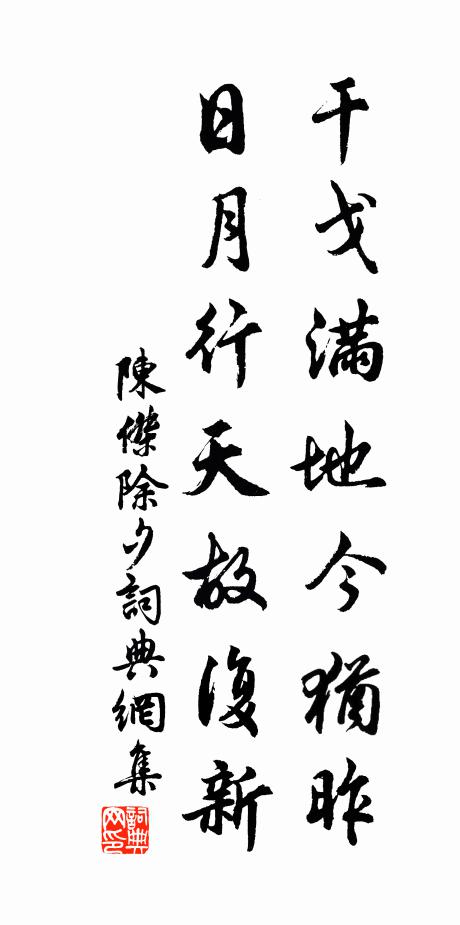 干戈滿地今猶昨
日月行天故復新
陳傑除夕詞典網集
詞典网印